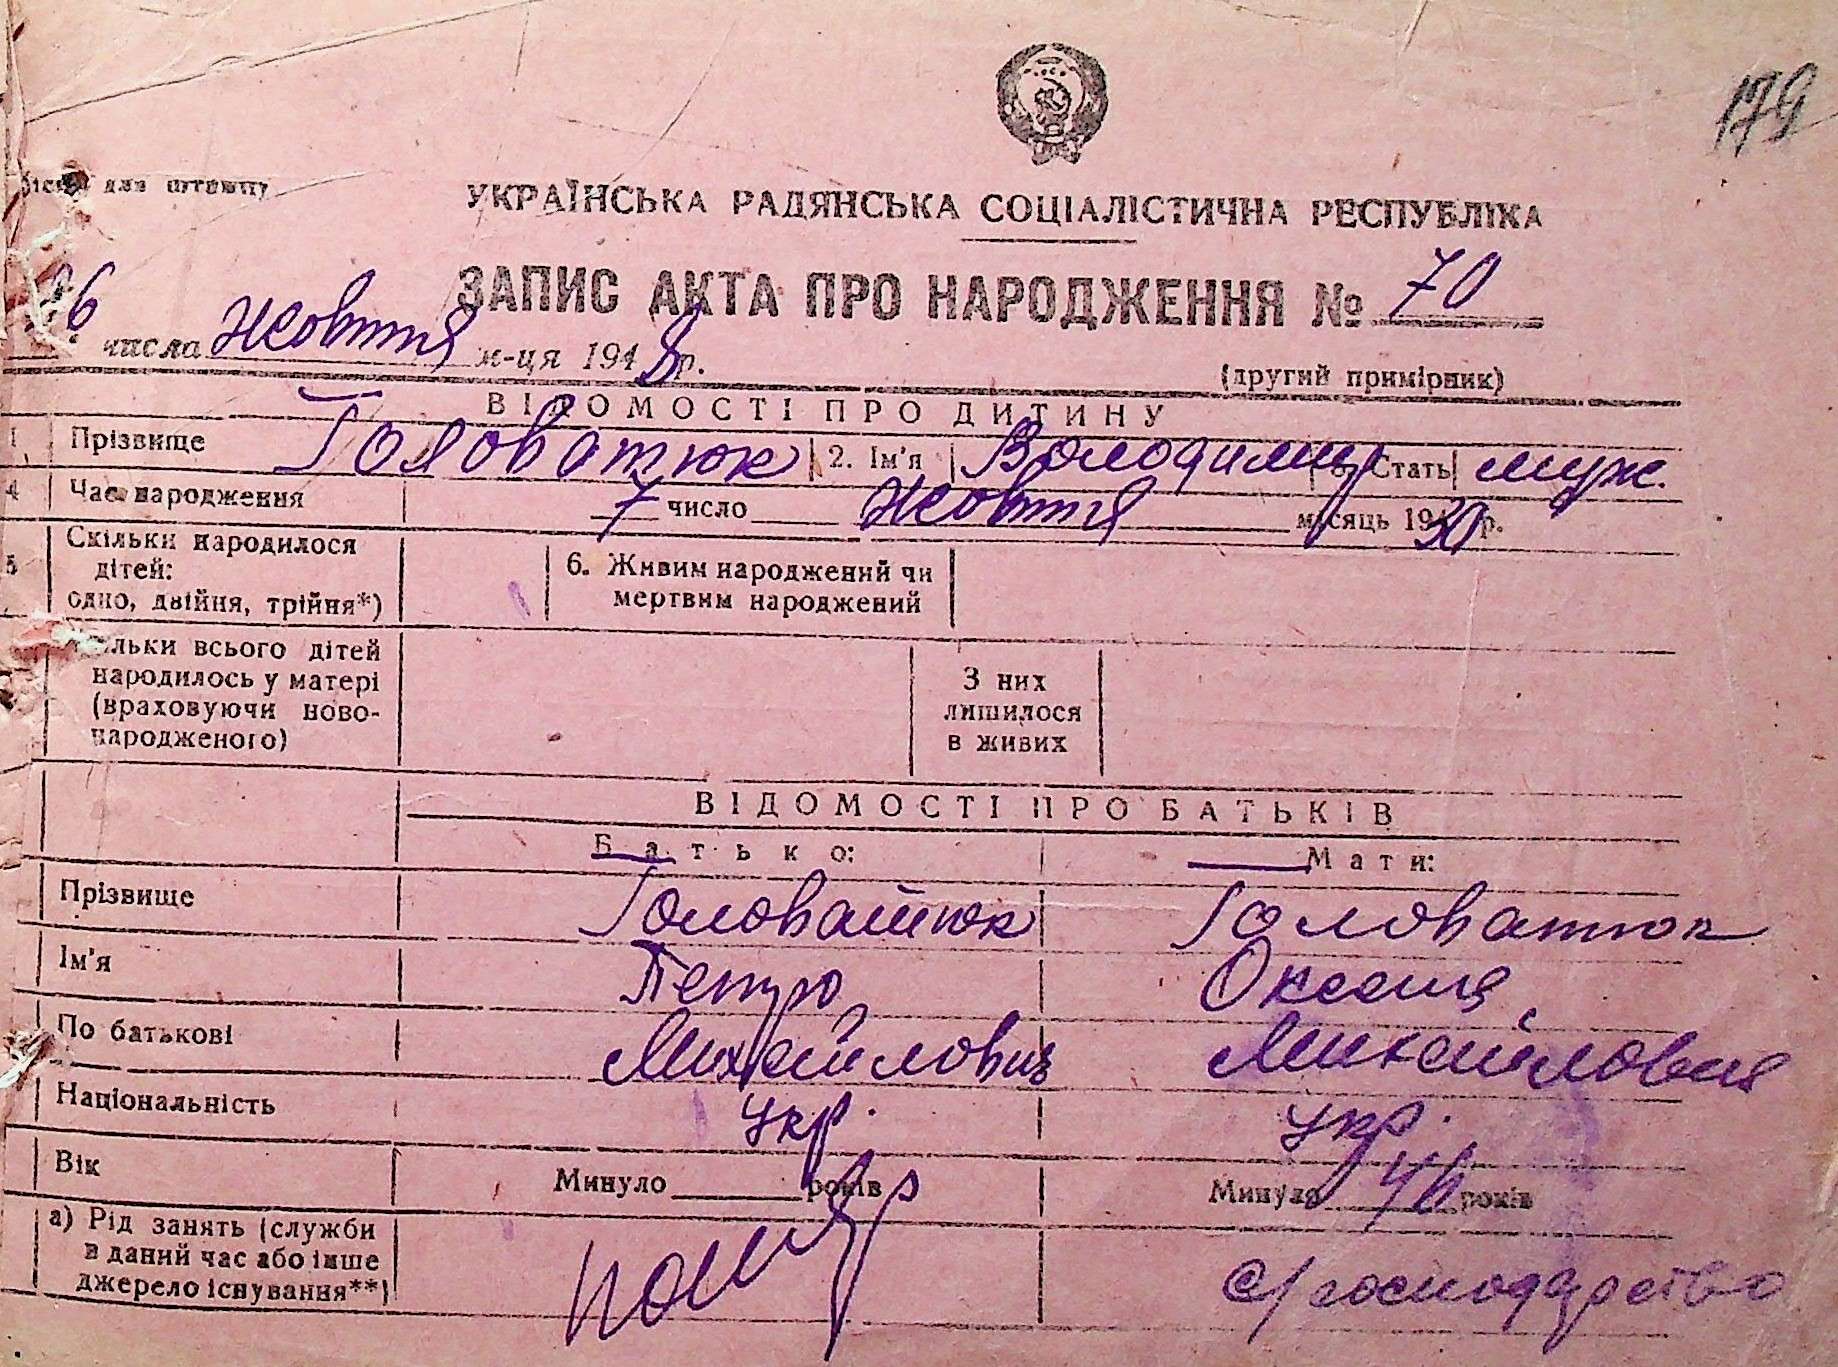 179
для штампу
УКРАЇНСЬКА РАДЯНСЬКА СОЦІАЛІСТИЧНА РЕСПУБЛІКА
ЗАПИС АКТА ПРО НАРОДЖЕННЯ № 70
числа Жовтня м-ця 1948 р.
(другий примірник)
ВІДОМОСТІ ПРО ДИТИНУ
1 Прізвище Головатюк 2. Ім'я Володимир Стать муж.
4 Час народження 7 число Жовтня місяць 1930 р.
5 Скільки народилося дітей: одно, двійня, трійня*) 6. Живим народжений чи мертвим народжений
всього дітей народилось у матері (враховуючи новонародженого) З них лишилося в живих
ВІДОМОСТІ ПРО БАТЬКІВ
Батько: Мати:
Прізвище Головатюк Головатюк
Ім'я Петро Оксеня
По батькові Михайлович Михайловна
Національність укр. укр.
Вік Минуло років Минуло років
а) Рід занять (служби в даний час або інше джерело існування**) с/господарство